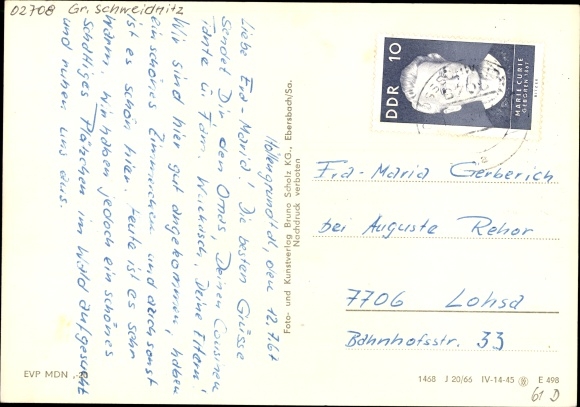 02708 Gr. Schweidnitz
Liebe Eva-Maria! Die besten Grüsse
sendet Dir, den Omas, Deinen Cousinen
Tante u. Fam. Deine Eltern!
Wir sind hier gut angekommen, haben
ein schönes Zimmerchen und auch sonst
ist es schön hier. Heute ist es sehr
warm. Wir haben jedoch ein schönes
schattiges Plätzchen im Wald aufgesucht
und ruhen uns aus.
den 12.7.67
Foto- und Kunstverlag Bruno Scholz KG., Ebersbach/Sa.
Nachdruck verboten
DDR 10
MARIE CURIE
GEBOREN 1867
Eva-Maria Gerberich
bei Auguste Rehor
7706 Lohsa
Bahnhofsstr. 33
EVP MDN
1468 J 20/66 IV-14-45 E 498
61 D